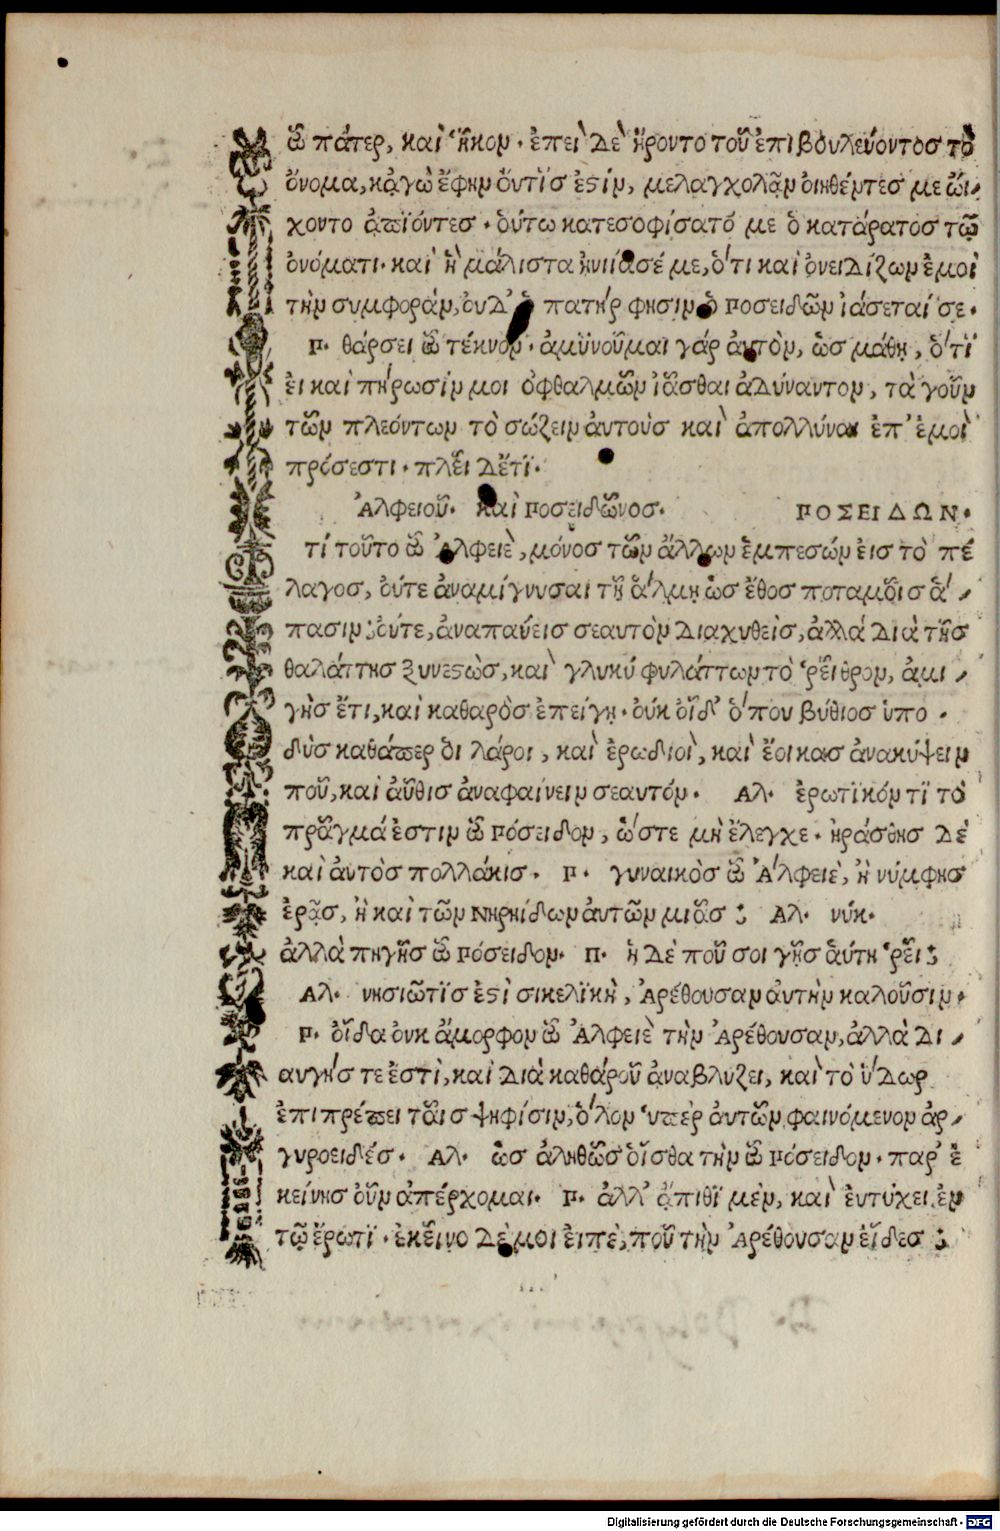 ὦ πάτερ, καὶ ἧκον · ἐπεὶ δὲ ἤροντο τοῦ ἐπιβουλεύοντος τὸ
ὄνομα, κᾀγὼ ἔφην ὅυτίς ἐϛίν, μελαγχολᾷν ὀιηθέντες με ᾤι-
χοντο ἀπϊόντες · ὁύτω κατεσοφίσατό με ὁ κατάρατος τῷ
ὀνόματι · καὶ ἣ μάλιστα ἠνίασέ με, ὅτι καὶ ὀνειδίζων ἐμοὶ
τὴν συμφορὰν, ὀυδ' ὁ πατήρ φησιν ὁ Ποσειδῶν ἰάσεταί σε ·
Π · θάρσει ὦ τέκνον · ἀμϋνοῦμαι γάρ ἀυτὸν, ὡς μάθῃ, ὅτϊ
ἐι καὶ πήρωσίν μοι ὀφθαλμῶν ἰᾶσθαι ἀδύναντον, τὰ γοῦν
τῶν πλεόντων τὸ σώζειν ἀυτοὺς καὶ ἀπολλύναι ἐπ' ἐμοὶ
πρόσεστι · πλεῖ δὲ ἔτϊ ·
Ἀλφειοῦ · καὶ Ποσειδῶνος · ΠΟΣΕΙΔΩΝ ·
τί τοῦτο ὦ Ἀλφειὲ, μόνος τῶν ἄλλων ἐμπεσών ἐις τὸ πέ
λαγος, ὀύτε ἀναμίγνυσαι τῇ ἅλμῃ ὡς ἔθος ποταμοῖς ἅ-
πασιν; ὀύτε, ἀναπαύεις σεαυτὸν διαχυθεὶς, ἀλλά διὰ τῆς
θαλάττης ξυνεϛὼς, καὶ γλυκύ φυλάττων τὸ ῥεῖθρον, ἀμι-
γὴς ἔτι, καὶ καθαρὸς ἐπείγῃ · ὀύκ ὀῖδ' ὅπου βύθιος ὑπο -
δὺς καθάπερ ὁι λάροι, καὶ ἐρωδιοὶ, καὶ ἔοικας ἀνακύψειν
ποῦ, καὶ ἀῦθις ἀναφαίνειν σεαυτόν · Αλ · ἐρωτϊκόν τϊ τὸ
πρᾶγμά ἐστιν ὦ Πόσειδον, ὥστε μὴ ἔλεγχε · ἠράσθης δὲ
καὶ ἀυτὸς πολλάκις · Π · γυναικὸς ὦ Ἀλφειὲ, ἢ νύμφης
ἐρᾷς, ἢ καὶ τῶν Νηρηίδων ἀυτῶν μιᾶς ; Αλ · νύκ ·
ἀλλὰ πηγῆς ὦ Πόσειδον · Π · ἡ δὲ ποῦ σοι γῆς ἁύτη ῥεῖ ;
Αλ · νησιῶτϊς ἐϛὶ σικελϊκὴ, Ἀρέθουσαν ἀυτὴν καλοῦσιν ·
Π · ὀῖδα ὀυκ ἄμορφον ὦ Ἀλφειὲ τὴν Ἀρέθουσαν, ἀλλὰ δι-
αυγής τε ἐστὶ, καὶ διὰ καθάροῦ ἀναβλύζει, καὶ τὸ ὕδωρ
ἐπιπρέπει ταῖς ψηφίσιν, ὅλον ὑπὲρ ἀυτῶν φαινόμενον ἀρ-
γυροειδές · Αλ · ὡς ἀληθῶς ὀῖσθα τὴν ὦ Πόσειδον · παρ' ἐ
κείνης ὀῦν ἀπέρχομαι · Π · ἀλλ' ἄπιθϊ μὲν, καὶ ἐυτύχει ἐν
τῷ ἔρωτϊ · ἐκεῖνο δέ μοι ἐιπὲ, ποῦ τὴν Ἀρέθουσαν ἐῖδες ;
Digitalisierung gefördert durch die Deutsche Forschungsgemeinschaft - DFG